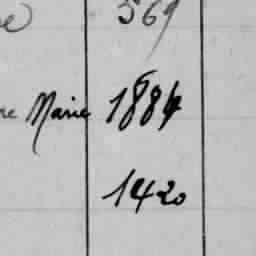 569
Marie 1884
1420